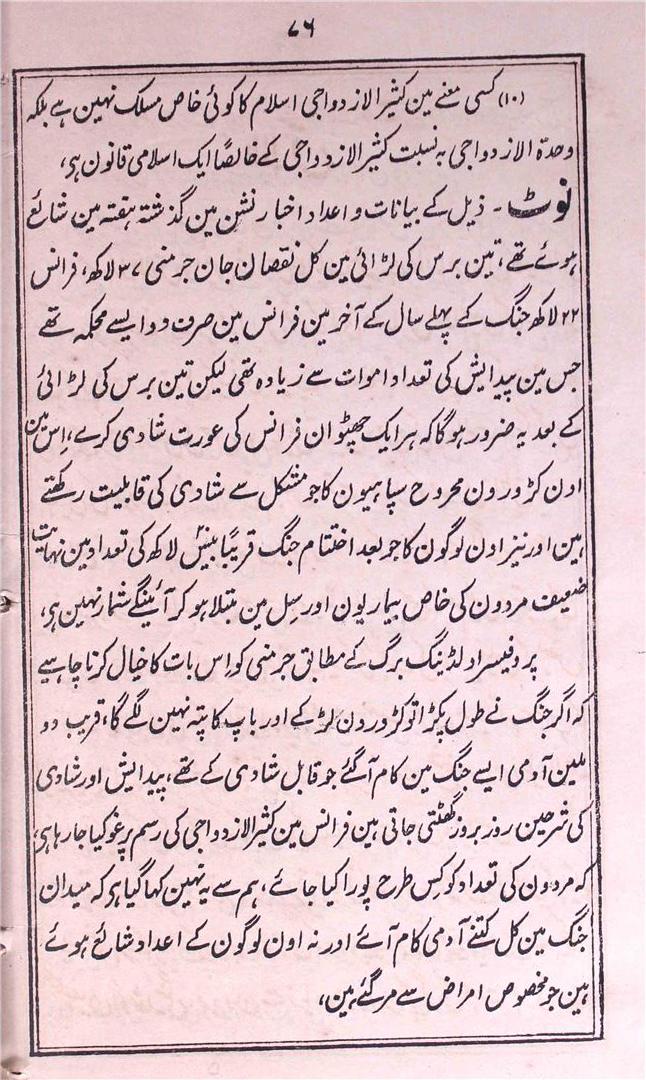 ۷۶
(۱۰) کسی معنے مین کثیر الازدواجی اسلام کا کوئی خاص مسلک نہین ہے بلکہ
وحدۃ الازدواجی بہ نسبت کثیر الازدواجی کے خالصًا ایک اسلامی قانون ہی،
نوٹ ۔ ذیل کے بیانات و اعداد اخبار نشن مین گذشتہ ہفتہ مین شائع
ہوئے تھے، تین برس کی لڑائی مین کل نقصان جان جرمنی ۳۷ لاکھ، فرانس
۲۲ لاکھ جنگ کے پہلے سال کے آخر مین فرانس مین صرف دو ایسے محکمہ تھے
جس مین پیدایش کی تعداد اموات سے زیادہ تھی لیکن تین برس کی لڑائی
کے بعد یہ ضرور ہوگا کہ ہر ایک چھٹوان فرانس کی عورت شادی کرے، اِس مین
اون کڑورون مجروح سپاہیون کا جو مشکل سے شادی کی قابلیت رکھتے
ہین اور نیز اون لوگون کا جو بعد اختتام جنگ قریبًا بیس لاکھ کی تعداد مین نہایت
ضعیف مردون کی خاص بیماریون اور سِل مین مبتلا ہو کر آئینگے شمار نہین ہی،
پروفیسر اولڈینگ برگ کے مطابق جرمنی کو اس بات کا خیال کرنا چاہیے
کہ اگر جنگ نے طول پکڑا تو کڑورون لڑکے اور باپ کا پتہ نہین لگے گا، قریب دو
ملین آدمی ایسے جنگ مین کام آگئے جو قابل شادی کے تھے، پیدایش اور شادی
کی شرحین روز بروز گھٹتی جاتی ہین فرانس مین کثیر الازدواجی کی رسم پر غور کیا جا رہا ہی،
کہ مردون کی تعداد کو کِس طرح پورا کیا جائے، ہم سے یہ نہین کہا گیا ہی کہ میدان
جنگ مین کل کتنے آدمی کام آئے اور نہ اون لوگون کے اعداد شائع ہوئے
ہین جو مخصوص امراض سے مر گئے ہین،